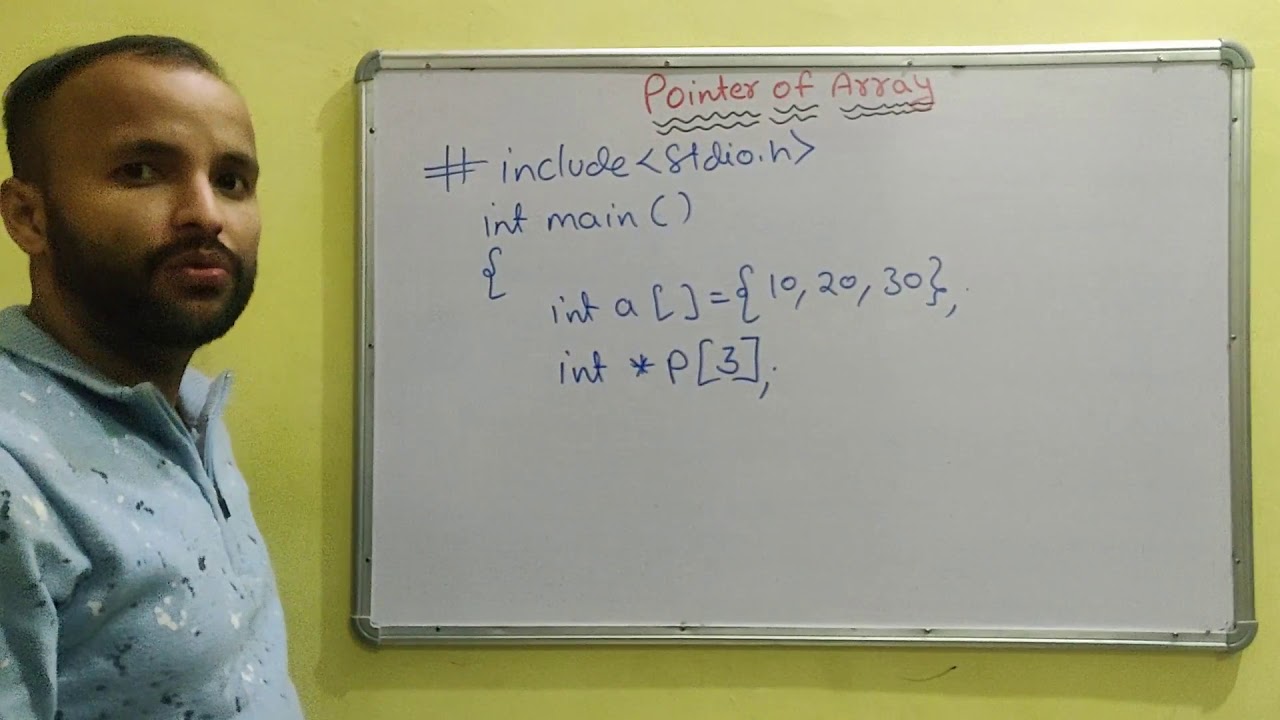 Pointer of Array
# include<stdio.h>
int main ()
{
int a [ ] = { 10, 20, 30};
int * p[3];